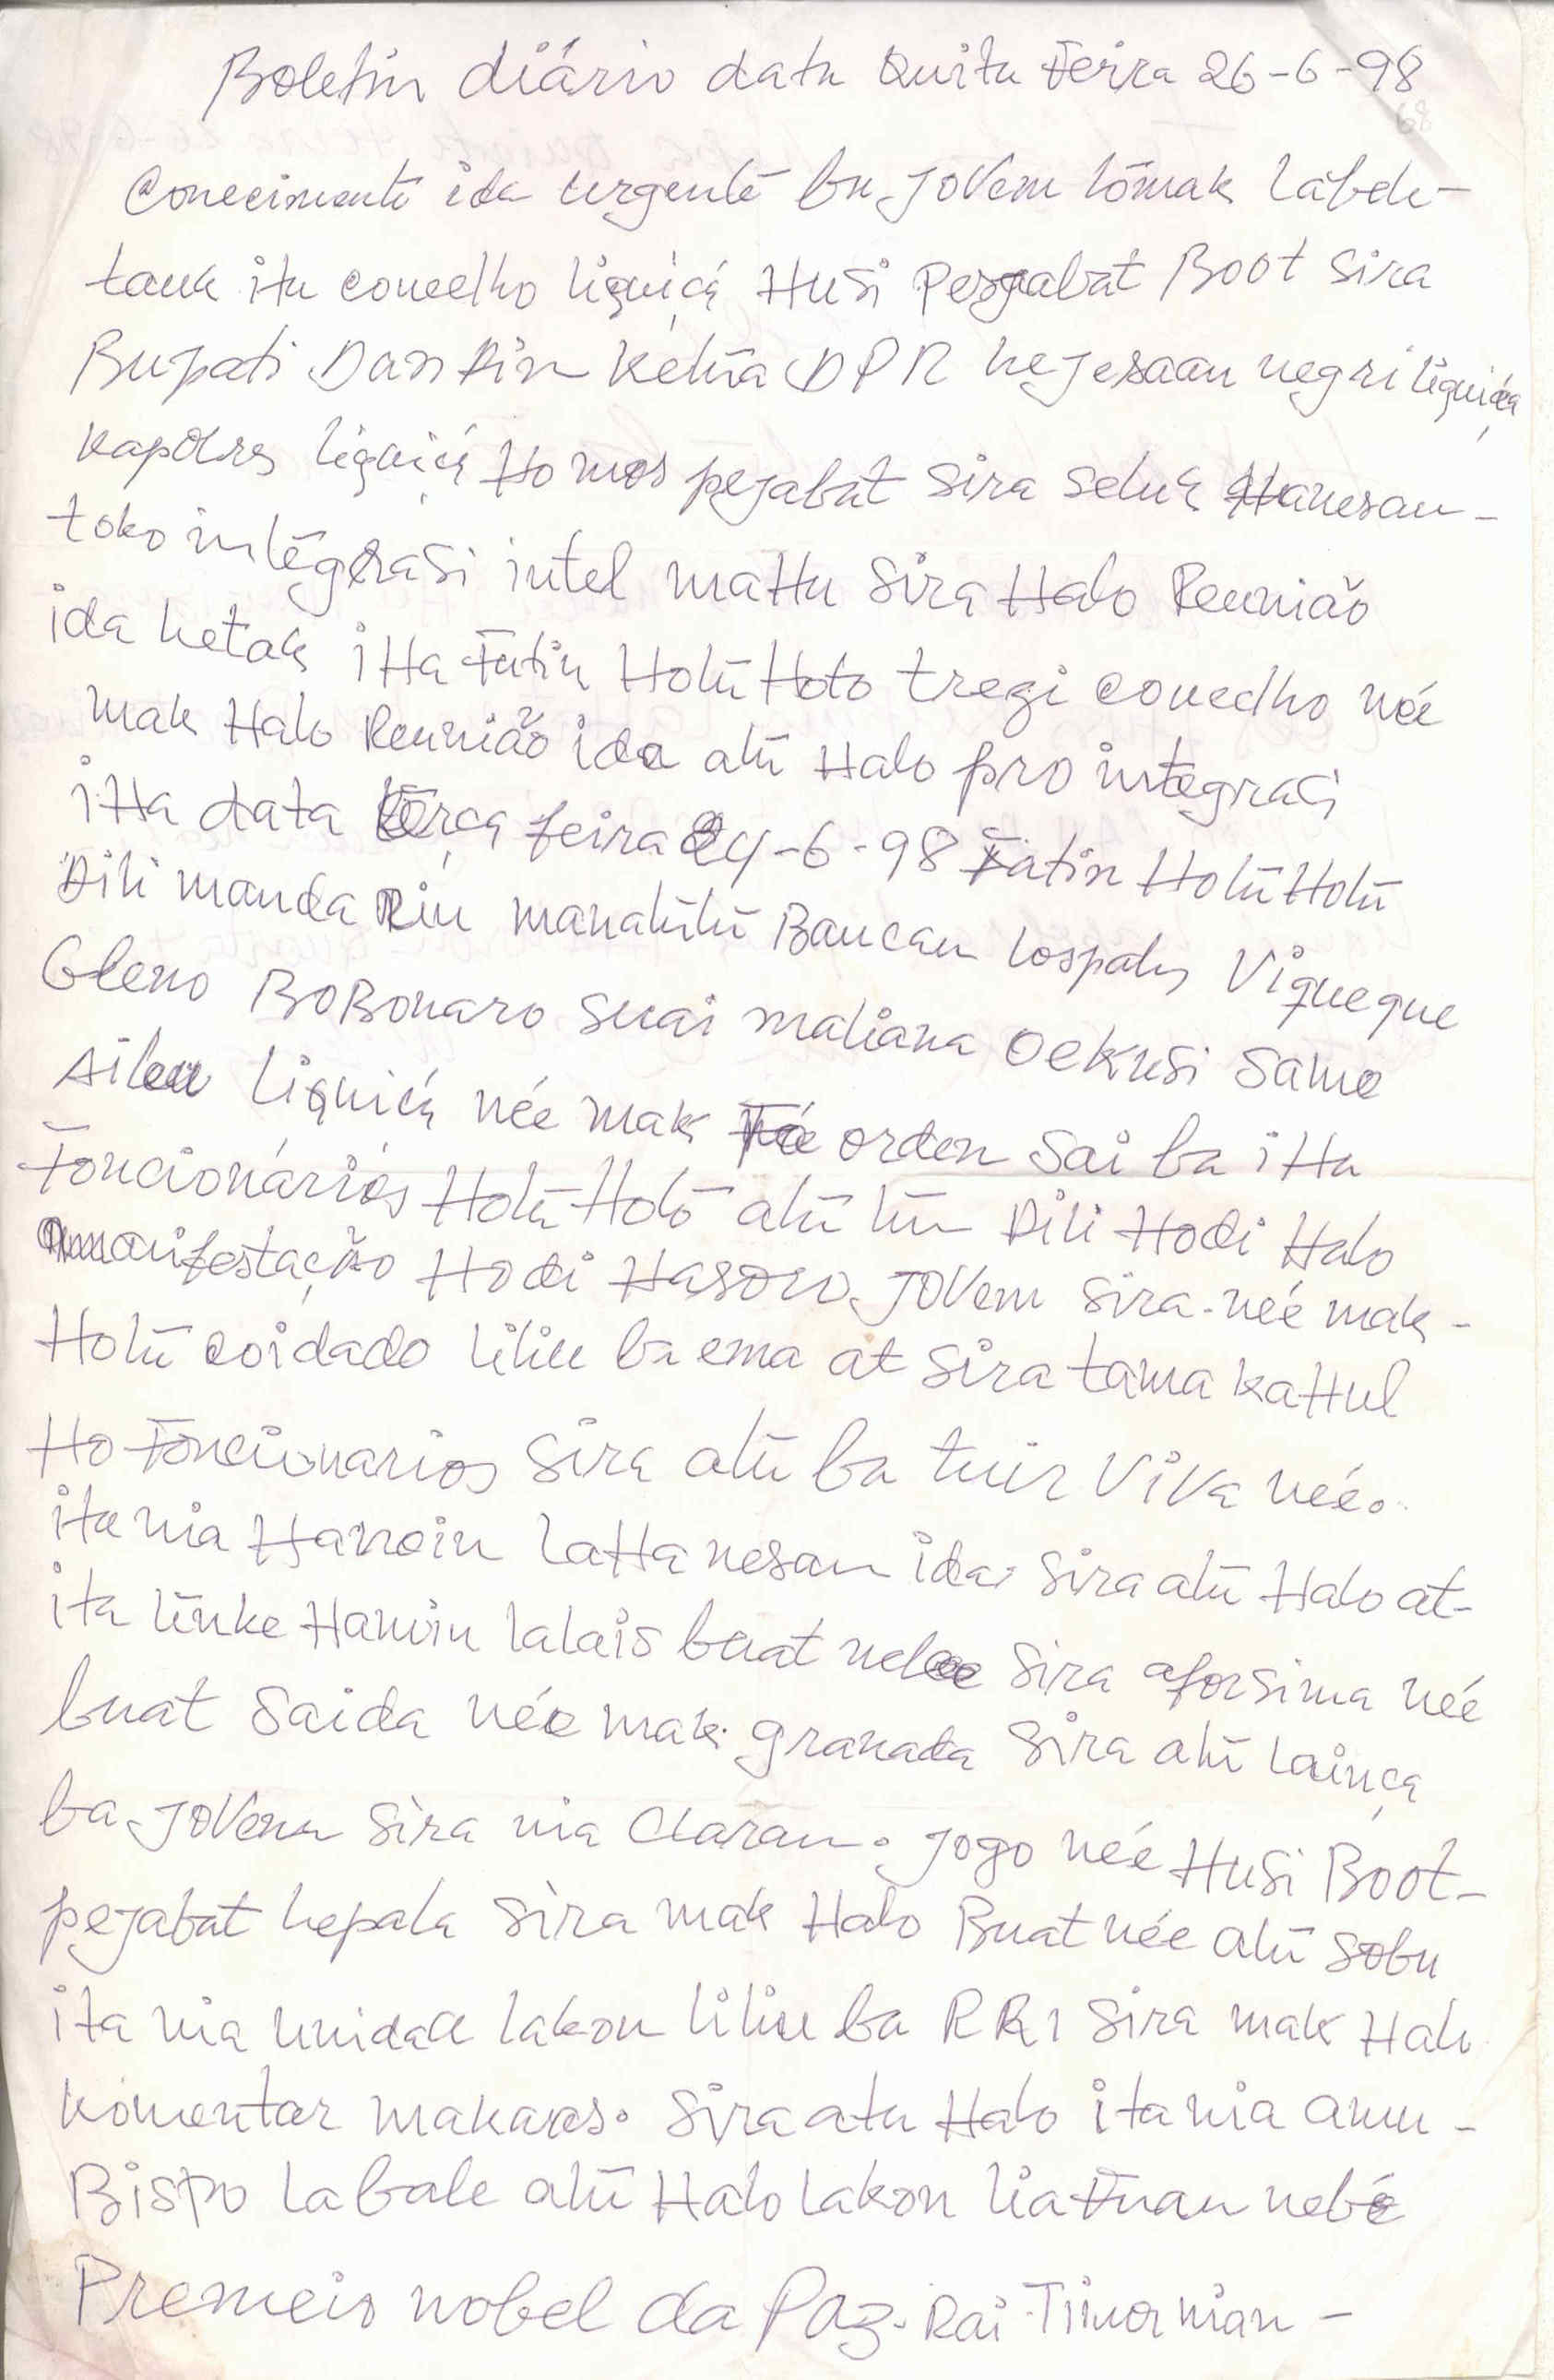 Boletin diário data Quita Feira 26-6-98
68
Conecimentu ida urgente ba Jovem tomak labele-
tauk ita concelho liquiçá Husi Pejabat Boot sira
Bupati Dandin ketua DPR kejesaan negri liquiça
kapolres liquiçá Ho mos pejabat sira seluk Hanesan-
toko integrasi intel mattu sira Halo Reunião
ida ketak iHa Fatin Hotu Hoto tregi concelho née
mak Halo Reunião ida atu Halo pro integrasi
iHa data terça feira 24-6-98 Fatin Hotu Hotu
Dili manda Rin manatutu Baucau lospalus Viqueque
Gleno BoBonaro Suai maliana Oekusi Same
Aileu Liquiçá née mak Fó orden sai ba iHa
Foncionários Hotu Hotu atu tun Dili Hodi Halo
manifestação Hodi Hasoru Jovem sira née mak-
Hotu coidado liliu ba ema at sira tama kaHul
Ho Foncionarios sira atu ba tuir Viva née.
ita nia Hanoin laHanesan ida sira atu Halo at-
ita tenke Hanoin lalais buat nebee sira aforsima née
buat saida née mak granada sira atu lainça
ba Jovem sira nia Claran. Jogo née Husi Boot-
pejabat kepala sira mak Halo Buat née atu sobu
ita nia unidade lakon liliu ba RRI sira mak Halo
komentar makaas. Sira atu Halo ita nia amu-
Bispo labale atu Halo lakon liaFuan nebé
Premeio nobel da Paz. Rai Timor nian-